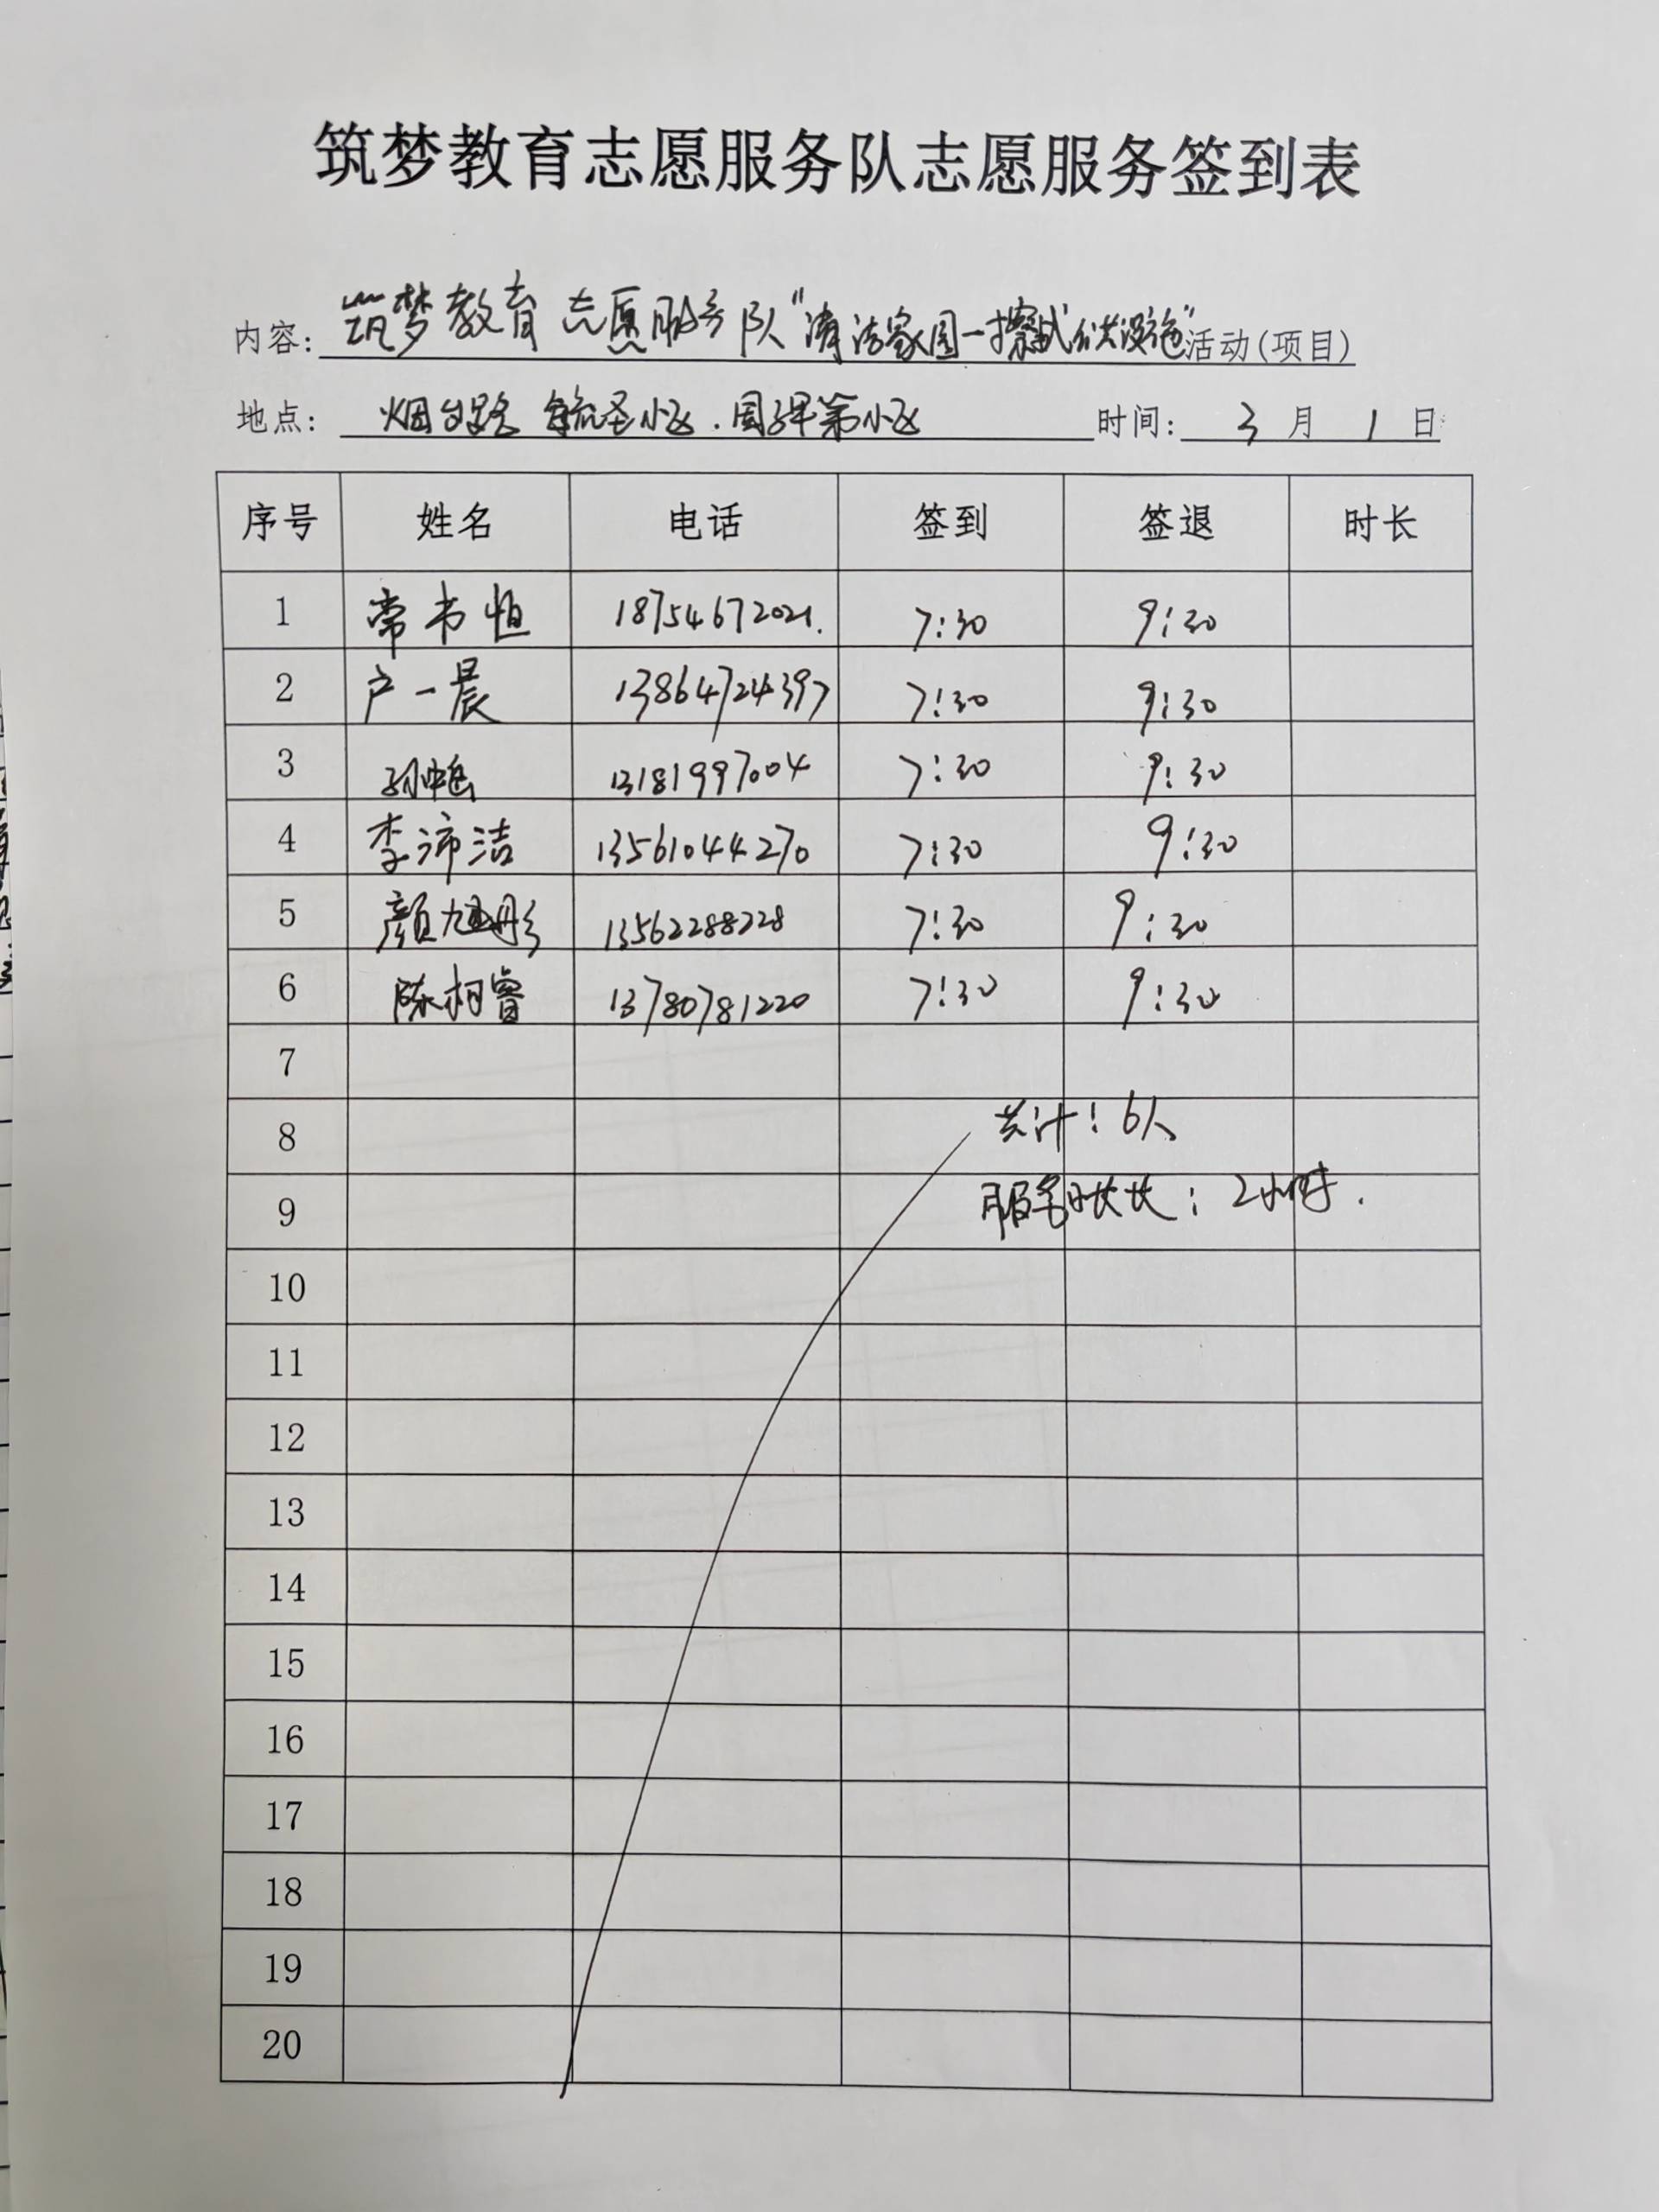 筑梦教育志愿服务队志愿服务签到表
内容: 筑梦教育志愿服务队"清洁家园一擦拭公共设施"活动(项目)
地点: 烟台路 小区. 小区 时间: 3 月 1 日
序号 姓名 电话 签到 签退 时长
1 常书恒 18754672021. 7:30 9:30
2 户一晨 13864724397 7:30 9:30
3 孙 13181997004 7:30 9:30
4 李沛洁 13561044270 7:30 9:30
5 颜旭彤 13562288228 7:30 9:30
6 陈柯睿 13780781220 7:30 9:30
7
8 共计: 6人
9 服务时长: 2小时.
10
11
12
13
14
15
16
17
18
19
20